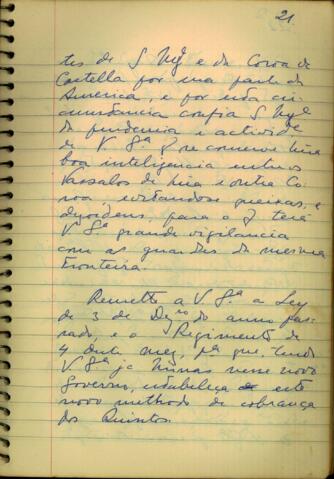 21
tes de S Mg.e e da Coroa de
Castella por sua parte da
America, e por esta cir
cumstancia confia S Mg.e
da prudencia e actividade
de V S.a q se conserve hũa
boa inteligencia entre os
Vassalos de hũa e outra Co
roa evitandose queixas, e
dezordens, para o q terá
V S.a grande vigilancia
com as guardas da mesma
Fronteira.
Remetto a V. S.a a Ley
de 3 de Dez.ro do anno pas
sado, e o Regimento de
4 deste mez, p.a que, tendo
V. S.a já Minas nesse novo
Governo, estabeleça este
novo methodo de cobrança
dos Quintos.